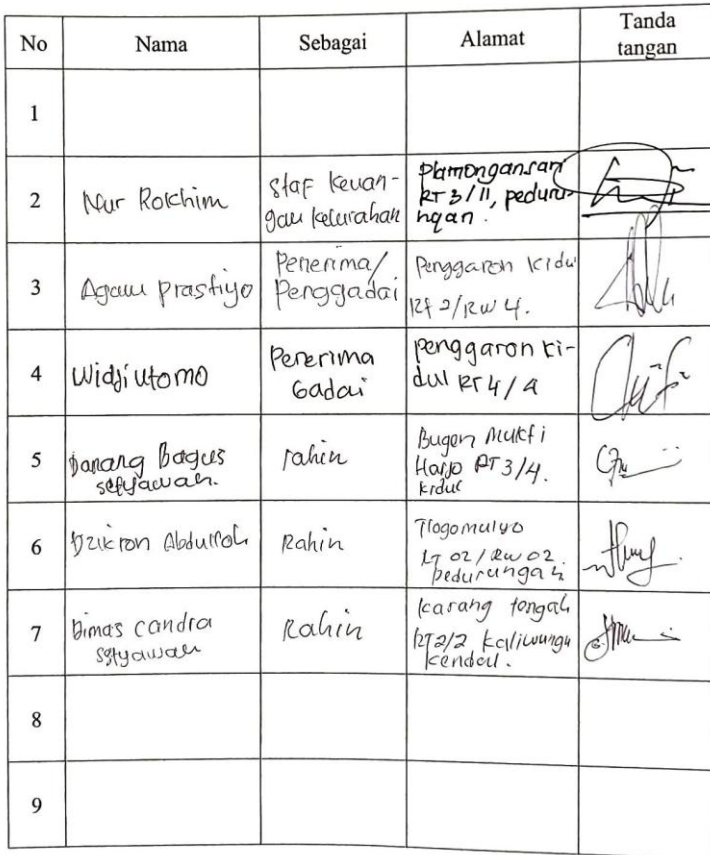 No Nama Sebagai Alamat Tanda
tangan
1
2 Nur Rokhim Staf Keuan-
gan kelurahan
Plamongansari
RT 3/11, peduru-
ngan.
3 Agam prastiyo Penerima/
Penggadai
Penggaron kidul
Rt 2/RW 4.
4 Widji utomo Penerima
Gadai
penggaron ki-
dul RT 4/4
5 Danang Bagus
setyawan.
rahin
Bugen Mukti
Harjo RT 3/4.
kidul
6 Dzikron Abdulloh Rahin
Tlogomulyo
RT 02/RW 02.
pedurungan
7 Bimas candra
setyawan
Rahin
karang tengah
RT 2/2 kaliwungu
kendal.
8
9